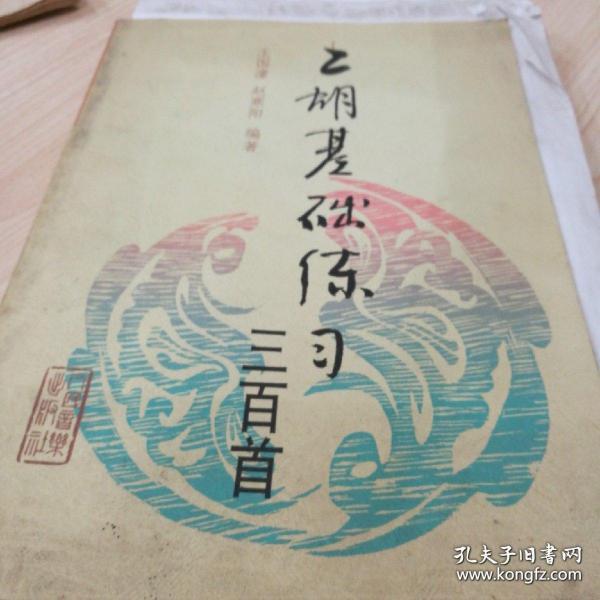 二胡基础练习
三百首
王国潼 赵寒阳 编著
人民音乐
出版社
孔夫子旧書网
www.kongfz.com